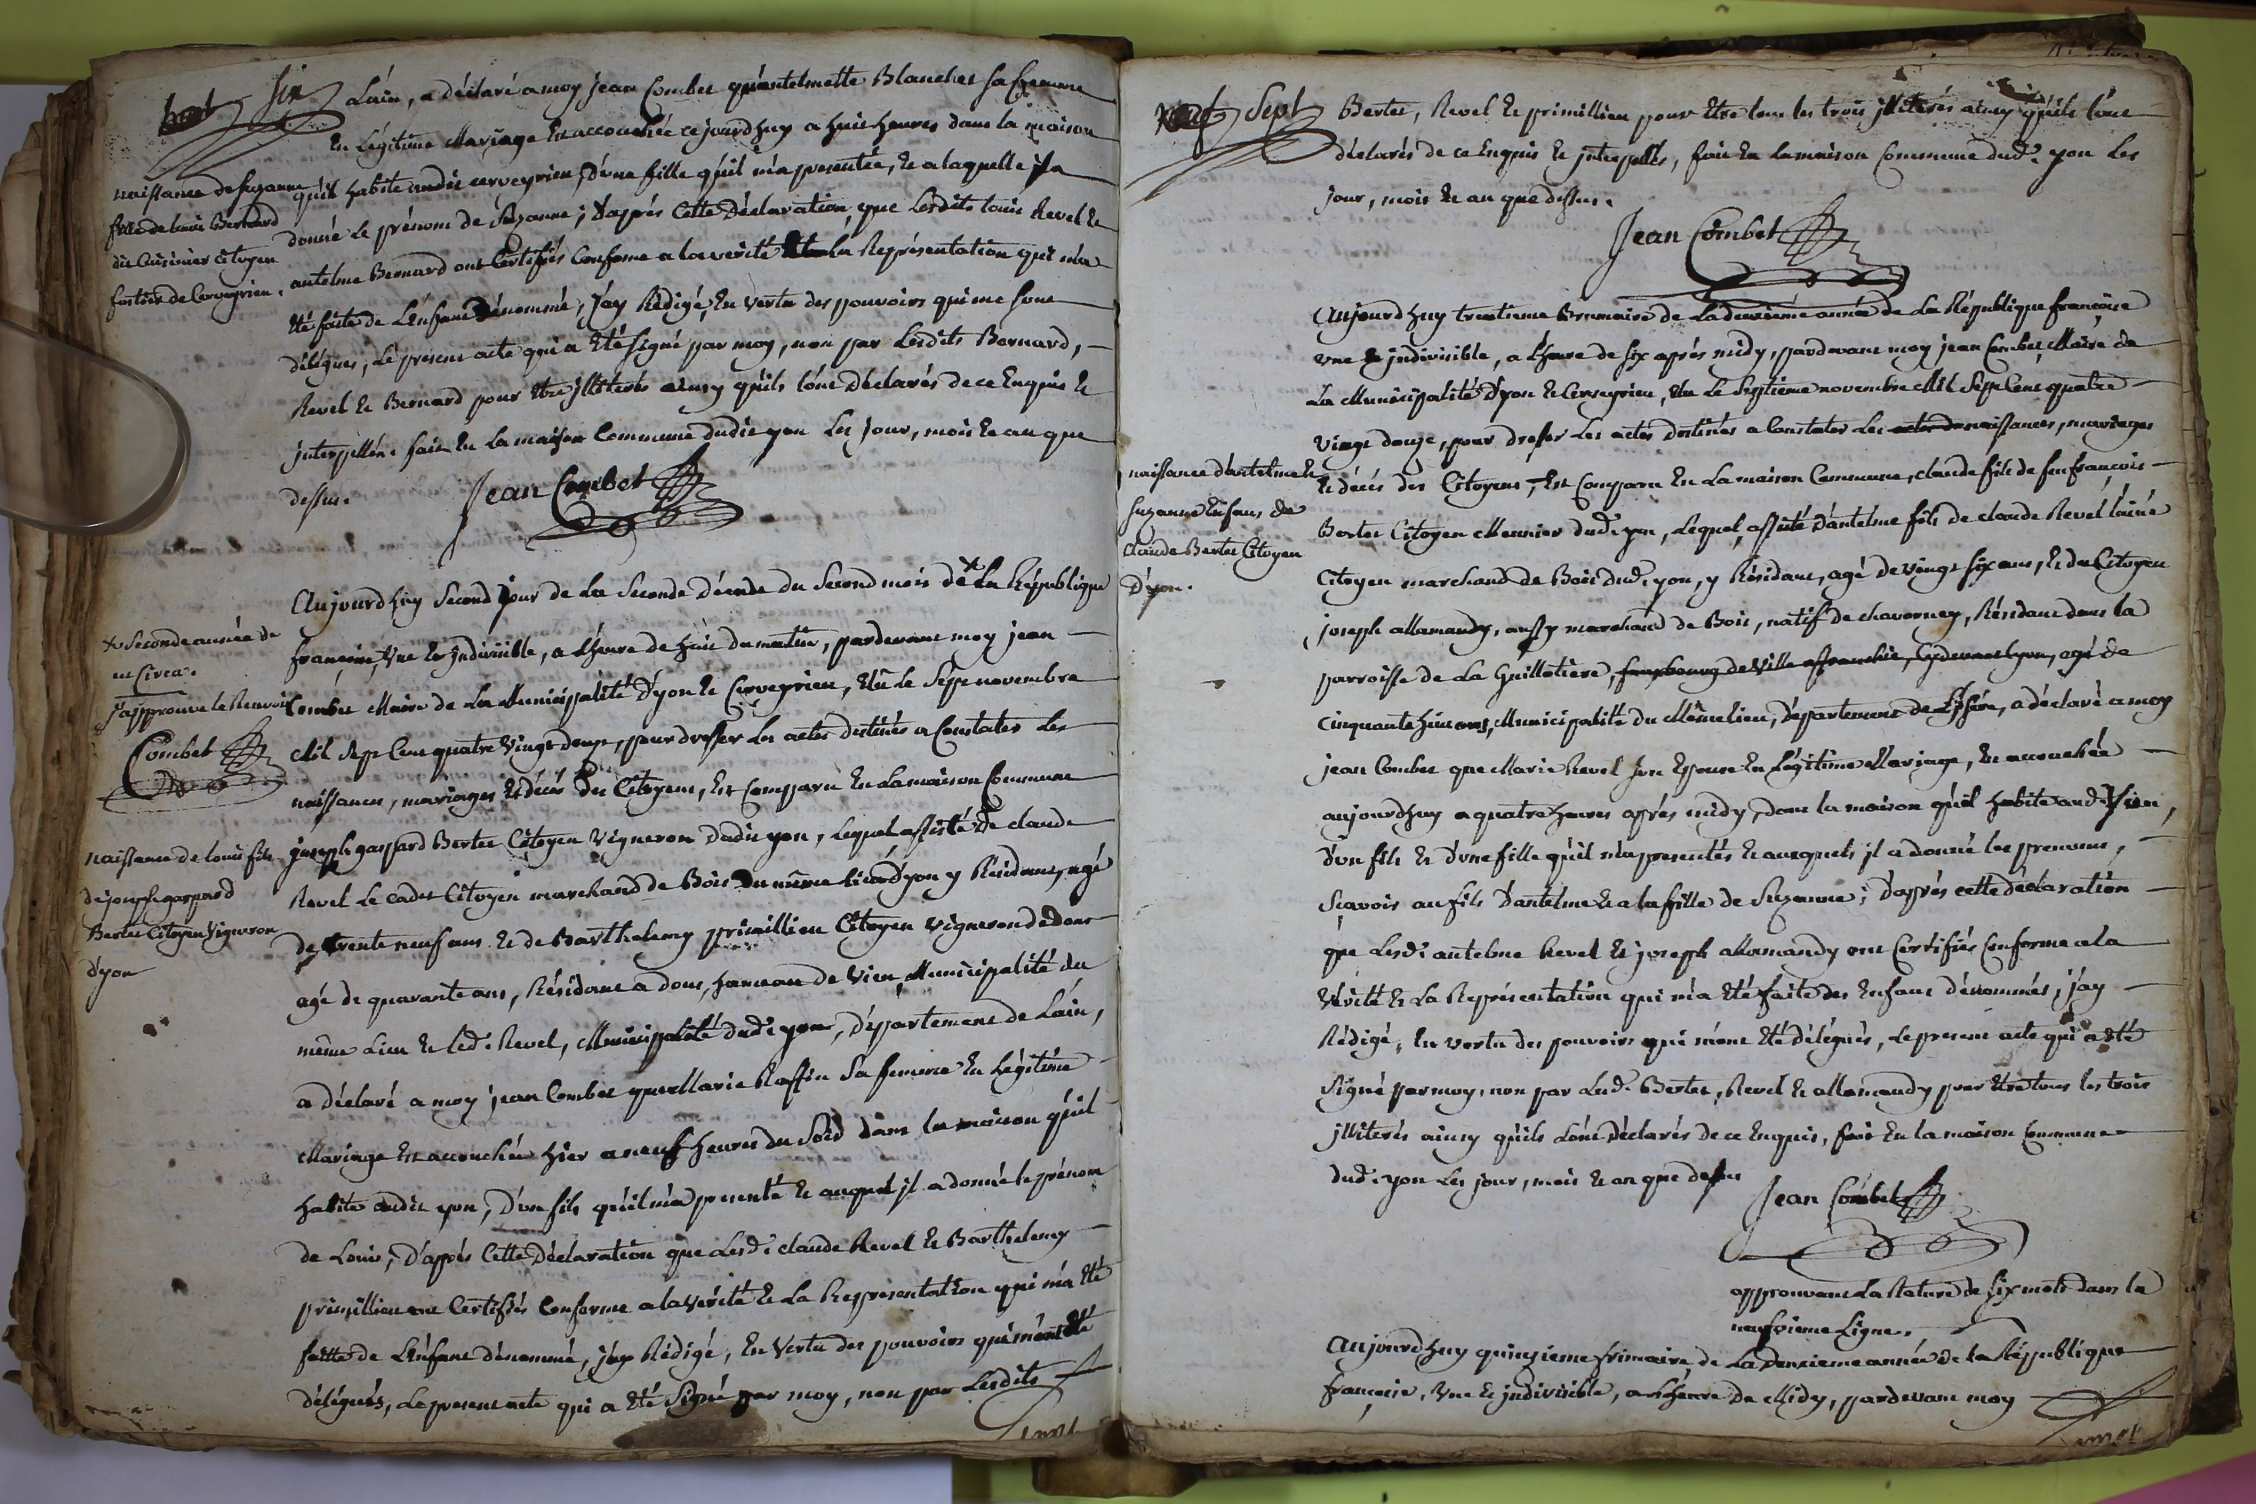 six
Lain, a déclaré a moy jean Combet qu'antelmette Blanchet sa femme
En Légitime Mariage Est accouchée ce jourdhuy a huit heures dans la maison
naissance de Suzanne
fille de louis Bernard
dit Cuisinier Citoyen
de Cerveyrieu.
qu'il habite audit cerveyrieu, d'une fille qu'il m'a presentée, Et a laquelle il a
donné Le prénom de Suzanne; d'après Cette Déclaration, que Lesdits louis Revel Et
antelme Bernard ont Certifiés Conforme a la verité La Représentation qui m'a
Eté faite de L'Enfant dénommé, J'ay Rédigé, En Vertu des pouvoirs qui me sont
délégués, Le present acte qui a Eté signé par moy, non par Lesdits Bernard,
Revel Et Bernard pour Etre illiterés ainsy qu'ils l'ont Déclarés de ce Enquis Et
interpellés. fait En La maison Commune dudit yon Les Jour, mois Et an que
dessus.
Jean Combet
Aujourdhuy Second jour de La Seconde Décade du Second mois de La République
x Seconde année de
J'approuve le Renvoi
Combet
françoise, Une Et Indivisible, a L'heure de huit du matin, pardevant moy jean
Combet Maire de La Municipalité d'yon Et Cerveyrieu, Elû Le Sept novembre
Mil Sept Cent quatre Vingt douze, pour dresser Les actes destinés a Constater Les
naissances, mariages Et décés des Citoyens, Est Comparu En La maison Commune
naissance de louis fils
de joseph gaspard
Bertet Citoyen Vigneron
d'yon
joseph gaspard Bertet Citoyen Vigneron dudit yon, Lequel assisté de claude
Revel Le cadet Citoyen marchand de Bois du même lieu d'yon y Résidant, agé
de trente neuf ans Et de Barthelemy primillieu Citoyen Vigneron de dons
agé de quarante ans, Résidant a dons, hameau de Vieu, Municipalité du
même Lieu Et led. Revel, Municipalité dud. yon, Département de Lain,
a déclaré a moy jean Combet que Marie Raffin Sa femme En Légitime
Mariage Est accouchée hier a neuf heures du Soir dans la maison qu'il
habite audit yon, D'un fils qu'il m'a presenté Et auquel il a donné le prénom
de Louis; D'après Cette Déclaration que Lesd. claude Revel Et Barthelemy
primillieu ont Certifiés Conforme a la Vérité Et La Représentation qui m'a Eté
faitte de L'Enfant dénommé, j'ay Rédigé, En Vertu des pouvoirs qui m'ont Eté
délégués, Le present acte qui a Eté Signé par moy, non par Lesdits
Sept
Bertet, Revel Et primillieu pour Etre tous les trois illiterés ainsy qu'ils l'ont
déclarés de ce Enquis Et interpellés, fait En La maison Commune dud. yon Les
jour, mois Et an que dessus.
Jean Combet
Aujourdhuy trentieme Brumaire de La deuxiéme année de La République françoise
Une Et indivisible, a L'heure de six après midy, pardevant moy jean Combet, Maire de
La Municipalité d'yon Et Cerveyrieu, Elu Le Septieme novembre Mil Sept Cent quatre
Vingt douze, pour dresser Les actes destinés a Constater Les actes de naissances, mariages
naissance d'antelme Et
Suzanne Enfans de
Claude Bertet Citoyen
D'yon.
Et décés des Citoyens, Est Comparu En La maison Commune, claude fils de feu françois
Bertet Citoyen Meunier dud. yon, Lequel, assisté d'antelme fils de claude Revel l'ainé
Citoyen marchand de Bois dud. yon, y Résidant, agé de vingt six ans, Et du Citoyen
joseph allamandy, aussy marchand de Bois, natif de chavornay, Résidant dans la
parroisse de La Guillotiere, fauxbourg de Ville affranchie, cydevant lyon, agé de
Cinquante huit ans, Municipalité du Même lieu, Département de L'Isére, a déclaré a moy
jean Combet que Marie Revel Son Epouse En Légitime Mariage, Est accouchée
aujourdhuy a quatre heures après midy, dans la maison qu'il habite aud. yon,
d'un fils Et d'une fille qu'il m'a presentés Et auxquels il a donné les prenoms,
Sçavoir au fils D'antelme Et a la fille de Suzanne; D'après cette Déclaration
que Lesd. antelme Revel Et joseph allamandy ont Certifiés Conforme a la
Vérité Et La Représentation qui m'a Eté faite des Enfans dénommés, j'ay
Rédigé, En vertu des pouvoirs qui m'ont Eté délégués, Le present acte qui a Eté
Signé par moy, non par Lesd. Bertet, Revel Et allamandy pour Etre tous les trois
illiterés ainsy qu'ils L'ont Déclarés de ce Enquis, fait En la maison Commune
dud. yon Les jour, mois Et an que dessus
Jean Combet
approuvant La Rature de six mots dans la
neufvieme Ligne.
Aujourdhuy quinzieme frimaire de La Deuxieme année de la République
françoise, Une Et indivisible, a L'heure de Midy, pardevant moy